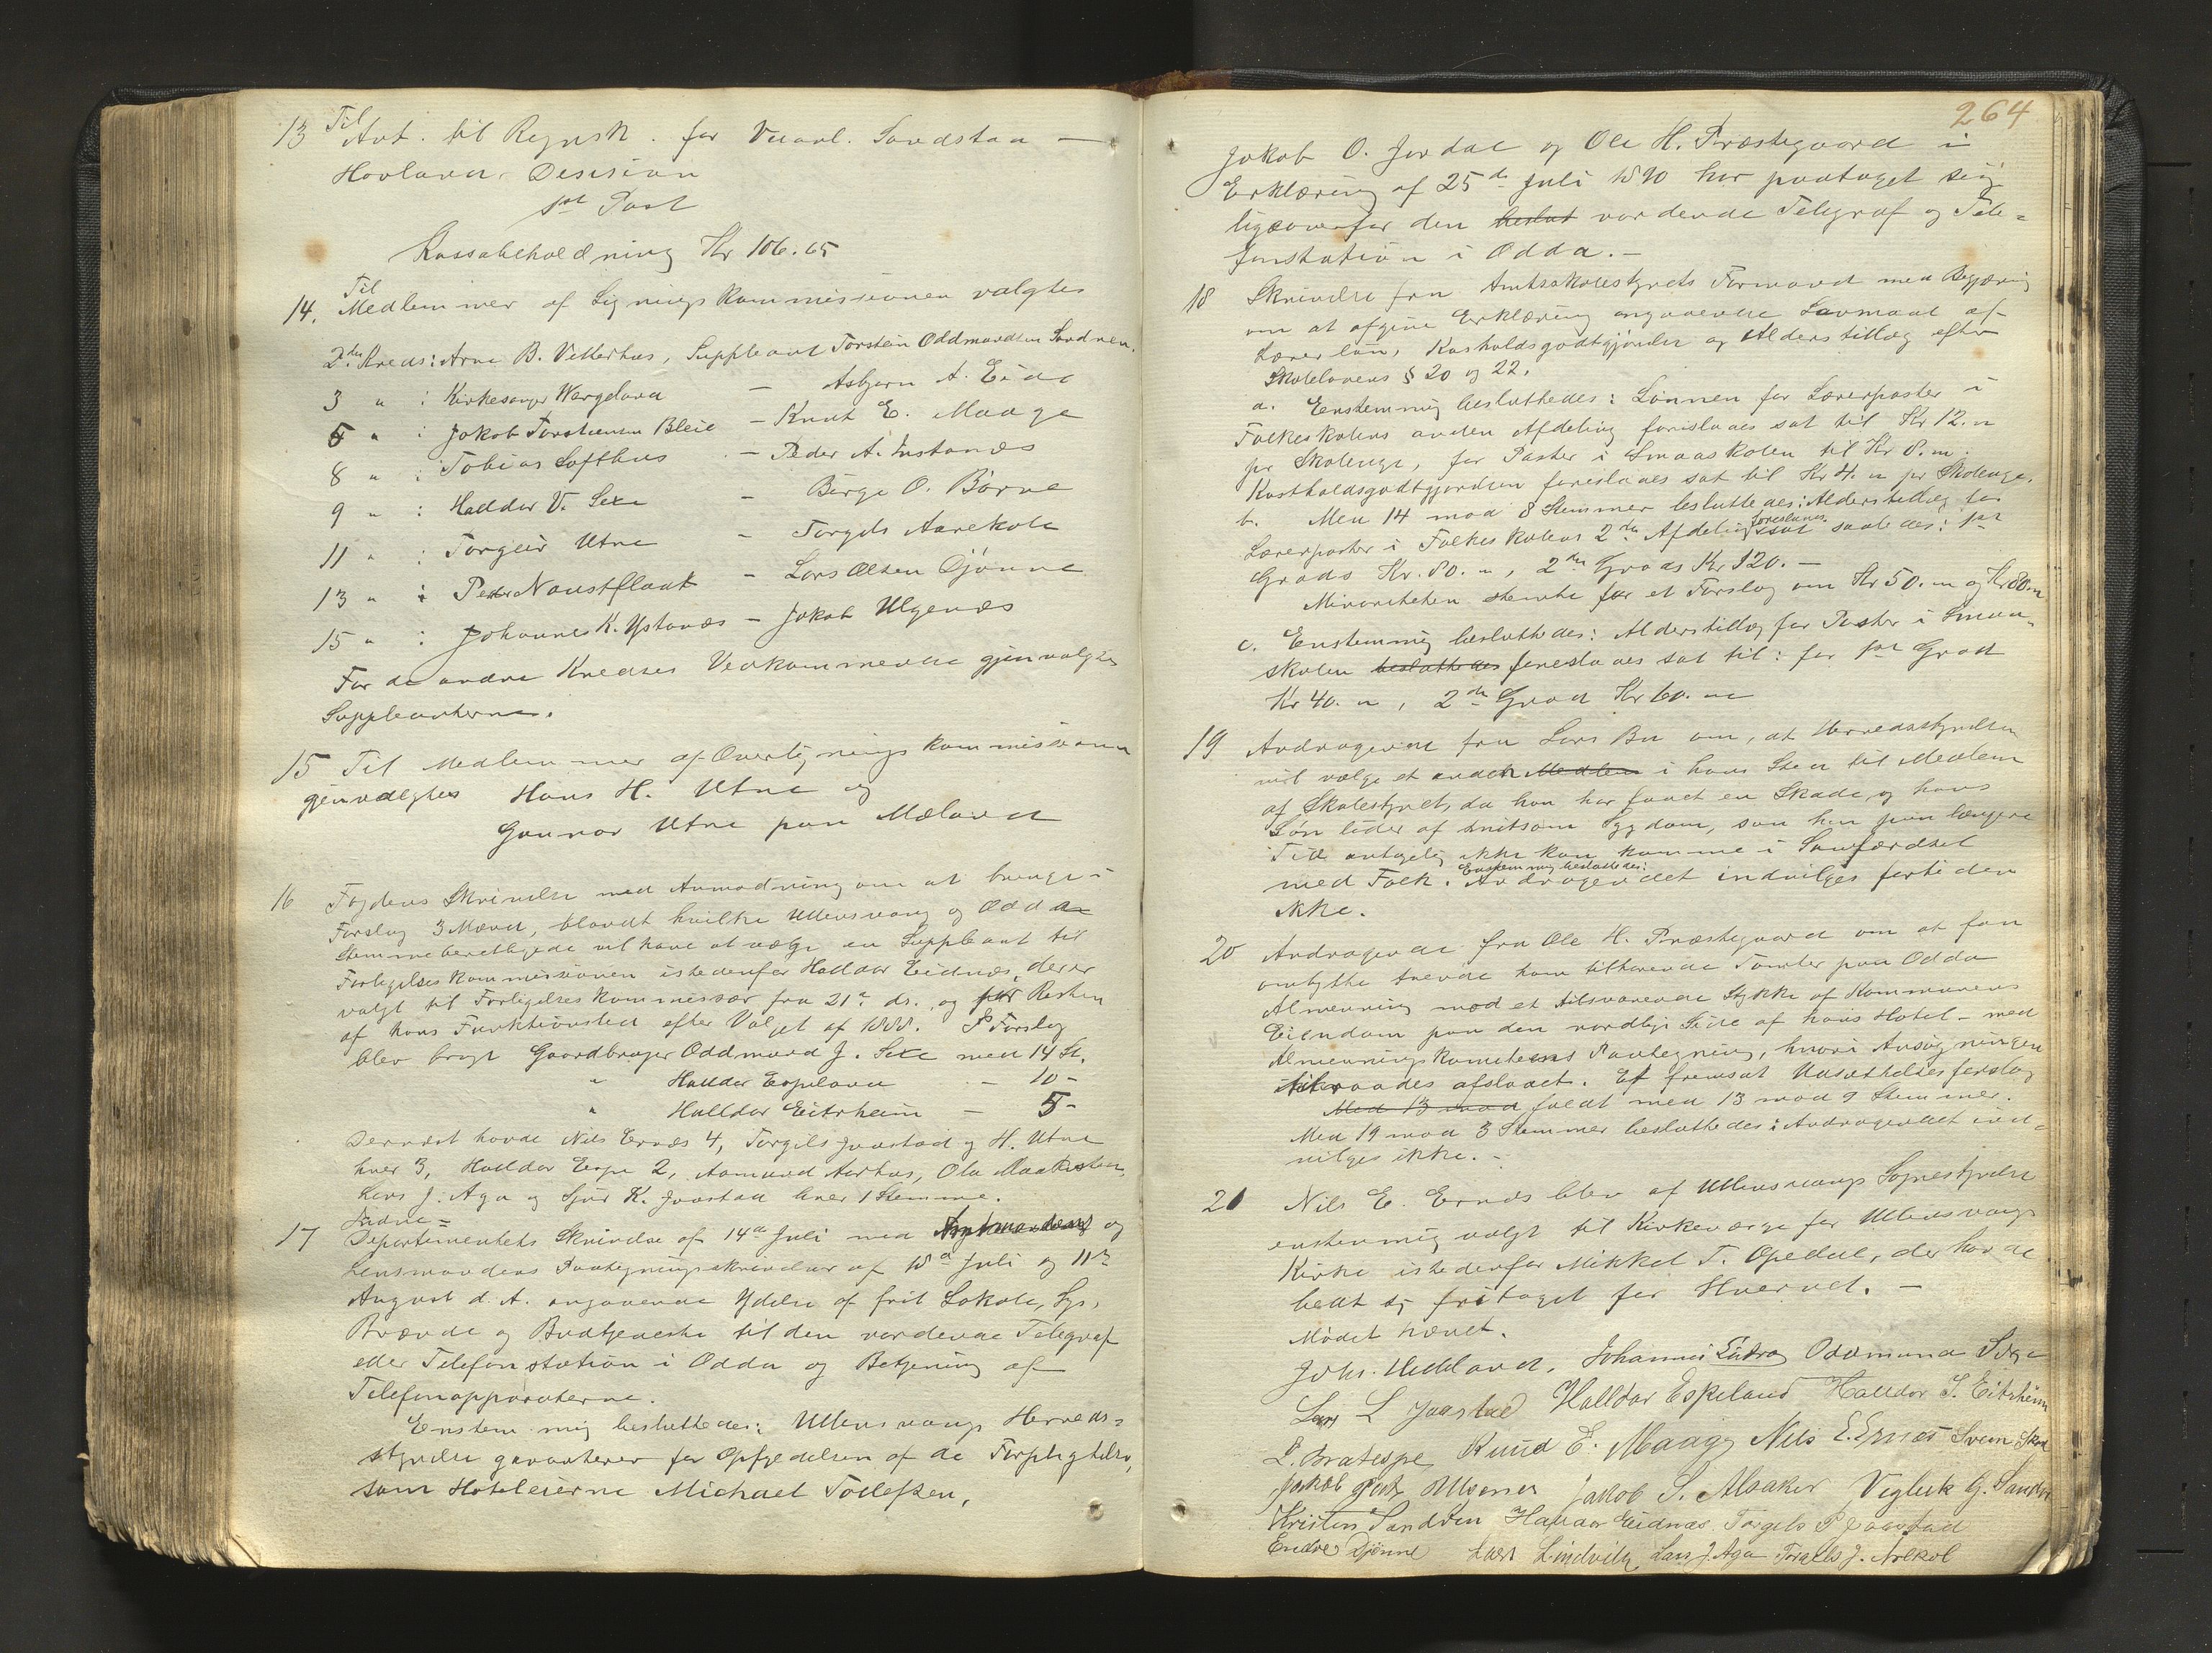 13 Til
Ant. til Regnsk. for Vaarl. Sandstaa —
Hovland. Desision
1ste Post
Kassabeholdning Kr 106.65
14. Til
Medlemmer af Ligningskommissionen valgtes
2den Kreds: Arne B. Velterhus, Suppleant Torstein Oddmundsen Sandven.
3 " : Kirkesanger Wergeland — Asbjørn A. Eide
5 " : Jakob Torsteinsen Bleie — Knut E. Maage
8 " : Tobias Lofthus — Peder A. Instanæs
9 " : Haldor V. Sexe — Børge O. Børve
11 " : Torgeir Utne — Torgils Aarekole
13 " : Peder Naustflaat — Lars Olsen Djönne
15 " : Johannes K. Ystanæs — Jakob Ulgenæs
For de andre Kredser Vedkommende gjenvalgtes
Suppleanterne.
15 Til Medlemmer af Overligningskommissionen
gjenvalgtes Hans H. Utne og
Gunnar Utne paa Mæland
16 Fogdens Skrivelse med Anmodning om at bringe i
Forslag 3 Mænd, blandt hvilke Ullensvang og Odda
Stemmeberettigede vil have at vælge en Suppleant til
Forligelseskommissionen istedenfor Haldor Eidnæs, der er
valgt til Forligelseskommissær fra 21de ds. og for Resten
af hans Funktionstid efter Valget af 1888. I Forslag
blev bragt Gaardbruger Oddmund J. Sexe med 14 St.
" Halldor Espeland — 10 -
" Halldor Eitrheim — 5 -
Dernæst havde Nils Ernæs 4, Torgils Jaastad og H. Utne
hver 3, Halldor Espe 2, Aamund Aarhus, Ola Maakestad,
Lars J. Aga og Sjur K. Jaastad hver 1 Stemme.
17 Indre=
Departementets Skrivelse af 14de Juli med Amtmandens og
Lensmandens Paategningsskrivelser af 18de Juli og 11te
August d. A. angaaende Ydelse af frit Lokale, Lys,
Brænde og Budtjeneste til den vordende Telegraf
eller Telefonstation i Odda og Betjening af
Telefonapparaterne.
Enstemmig besluttedes: Ullensvangs Herreds=
styrelse garanterer for Opfyldelsen af de Forpligtelser,
som Hoteleierne Michael Tollefsen,
264
Jakob O. Jordal og Ole H. Præstegaard i
Erklæring af 25de Juli 1890 har paataget sig
ligeoverfor den beslut vordende Telegraf og Tele=
fonstation i Odda. —
18 Skrivelse fra Amtsskolestyrets Formand med Begjæring
om at afgive Erklæring angaaende Lavmaal af
Lærerløn, Kostholdsgodtgjørelse og Alderstillæg efter
Skolelovens § 20 og 22.
a. Enstemmig besluttedes: Lønnen for Lærerposter i
Folkeskolens anden Afdeling foreslaaes sat til Kr 12. "
pr Skoleuge, for Poster i Smaaskolen til Kr 8. "
Kostholdsgodtgjørelsen foreslaaes sat til Kr 4. " pr Skoleuge.
b. Med 14 mod 8 Stemmer besluttedes: Alderstillæg for
Lærerposter i Folkeskolens 2den Afdeling foreslaaes sat saaledes: 1ste
Grads Kr. 80. ", 2den Grads Kr 120. —
Minoriteten stemte for et Forslag om Kr 50. " og Kr 80. "
c. Enstemmig besluttedes: Alderstillæg for Poster i Smaa=
skolen besluttedes foreslaaes sat til: for 1ste Grad
Kr 40. ", 2den Grad Kr 60. "
19 Andragende fra Lars Bu om, at Herredsstyrelsen
vil vælge et andet Medlem i hans Sted til Medlem
af Skolestyret, da han har faaet en Skade, og hans
Søn lider af smitsom Sygdom, saa han paa længere
Tid antagelig ikke kan komme i Samfærdsel
med Folk. Enstemmig besluttedes: Andragendet indvilges fortiden
ikke.
20 Andragende fra Ole H. Præstegaard om at faa
ombytte tvende ham tilhørende Tomter paa Odda
Almenning mod et tilsvarende Stykke af Kommunens
Eiendom paa den nordlige Side af hans Hotel — med
Almenningskomiteens Paategning, hvori Ansøgningen
tilraades afslaaet. Et fremsat Udsættelsesforslag
Med 13 mod faldt med 13 mod 9 Stemmer.
Med 19 mod 3 Stemmer besluttedes: Andragendet ind=
vilges ikke. —
21 Nils E. Ernæs blev af Ullensvangs Sognestyrelse
enstemmig valgt til Kirkeværge for Ullensvangs
Kirke istedenfor Mikkel T. Opedal, der havde
bedt sig fritaget for Hvervet. —
Mødet hævet.
Johs. Helland. Johannes Eidra Oddmund Sexe
Lars L Jaastad Halldor Espeland Halldor J. Eitrheim
L. Bratespe Knud E. Maage Nils E. Ernæs Svein
Jakob Jakob S. Alsaker Vigleik G. Sandv
Kristen Sandven Haldor Eidnæs Torgils P Jaastad
Endre Djønne Lars Lindvik Lars J. Aga Torgils J. Arekol